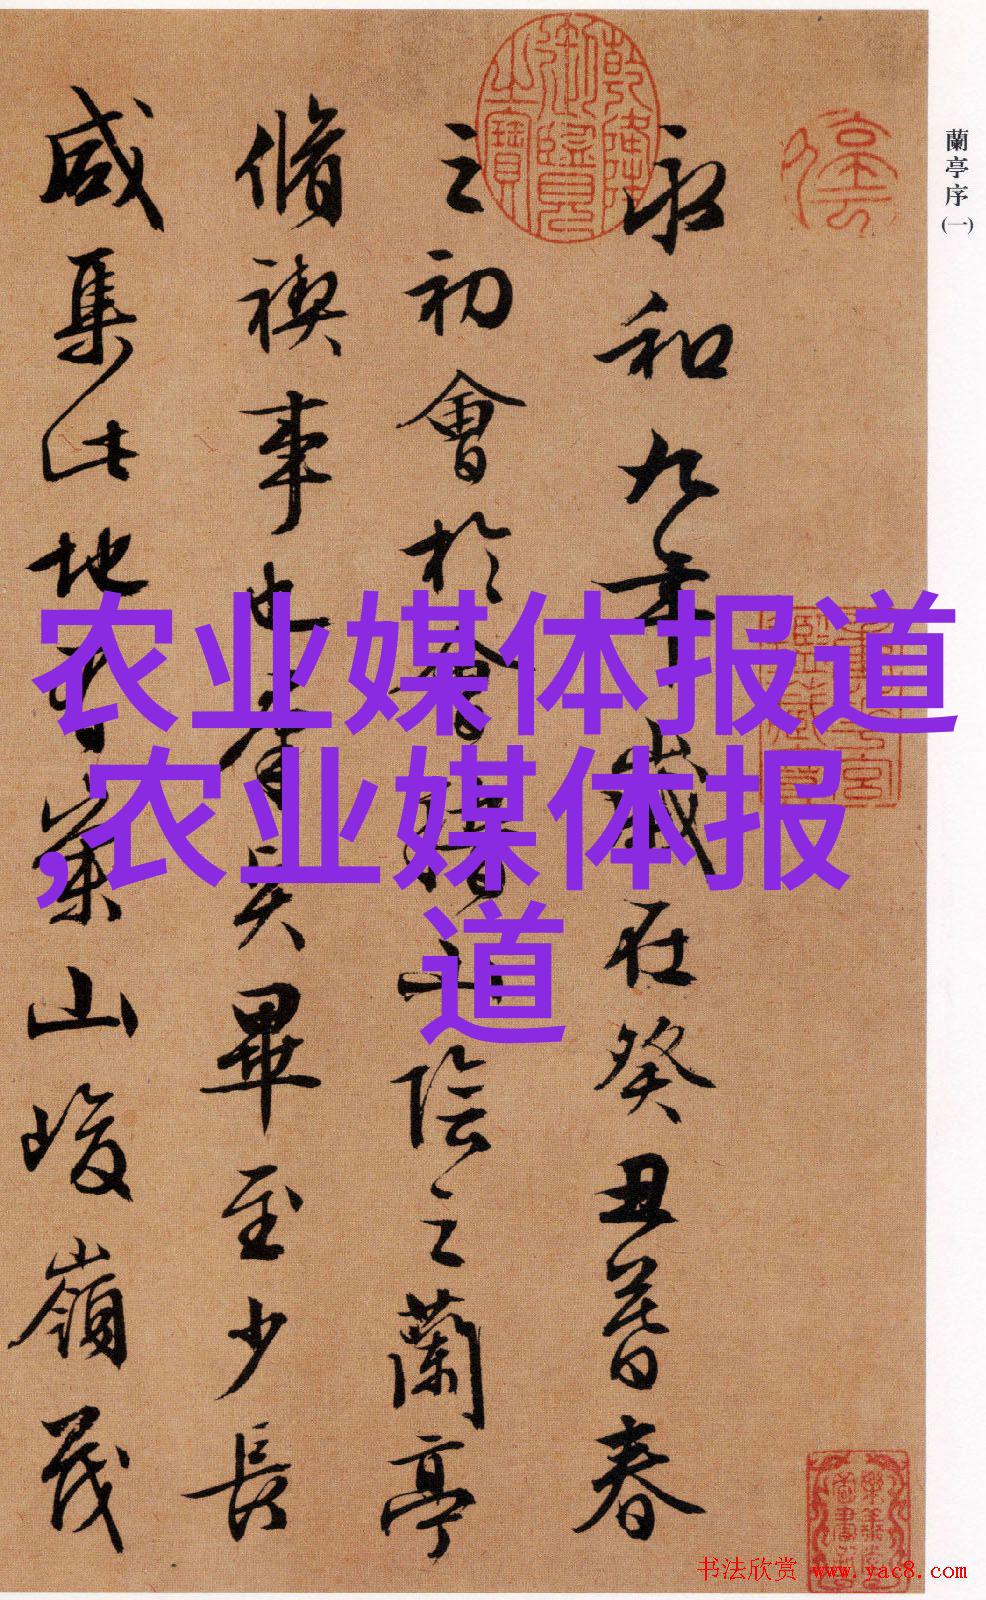 蘭亭序(一)
永和九年歲在癸丑暮春
之初會於會稽山陰之蘭亭
脩禊事也羣賢畢至少長
咸集此地有崇山峻嶺茂
乾隆御覽之寶
农业媒体报道
,农业媒体报
道
书法欣赏 www.yac8.com